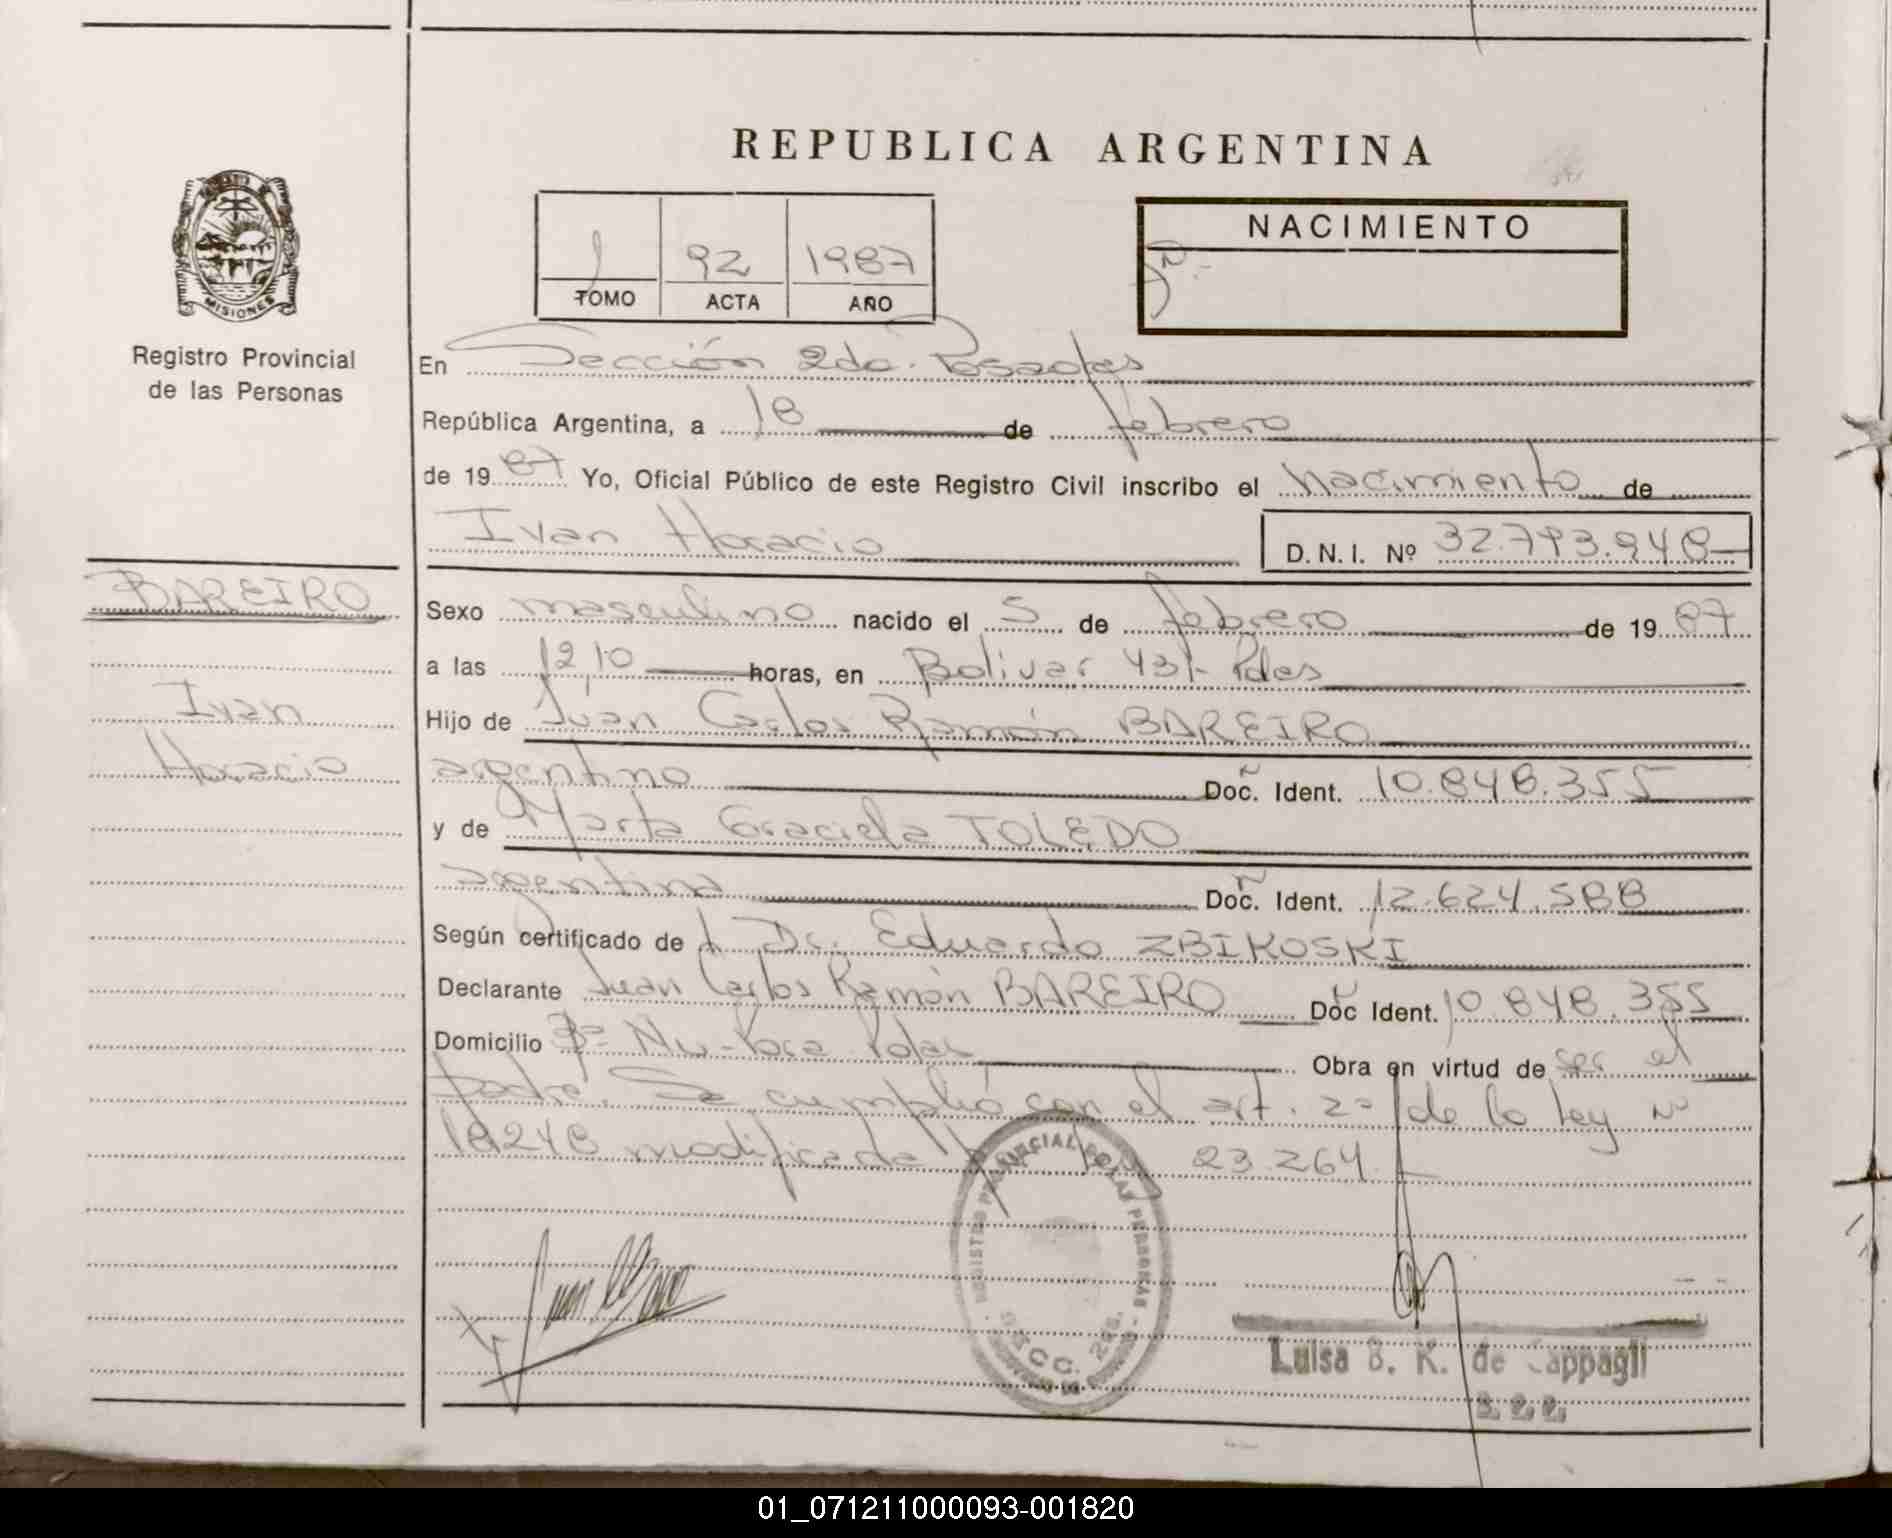 REPUBLICA ARGENTINA
MISIONES
Registro Provincial
de las Personas
1 92 1987
TOMO ACTA AÑO
NACIMIENTO
En Sección 2da. Posadas
República Argentina, a 18 de febrero
de 1987 Yo, Oficial Público de este Registro Civil inscribo el nacimiento de
Ivan Horacio D.N.I. Nº 32.793.948
BAREIRO
Ivan
Horacio
Sexo masculino nacido el 5 de febrero de 1987
a las 1210 horas, en Bolivar 431- Pdas
Hijo de Juan Carlos Ramón BAREIRO
argentino Doc. Ident. 10.848.355
y de Marta Graciela TOLEDO
argentina Doc. Ident. 12.624.588
Según certificado de Dr. Eduardo ZBIKOSKI
Declarante Juan Carlos Ramón BAREIRO Doc Ident. 10.848.355
Domicilio Ñu-Pora Pdas Obra en virtud de ser el
padre. Se cumplió con el art. 2º de la Ley Nº
18248 modificada Ley 23.264.
REGISTRO PROVINCIAL DE LAS PERSONAS
SECC. 2da.
Luisa B. K. de Cappagli
01_071211000093-001820